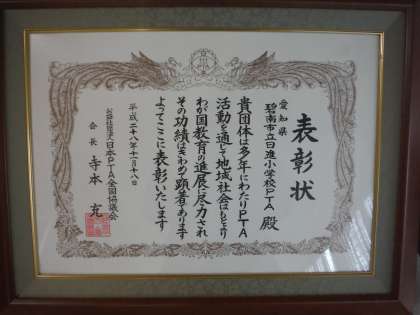 表彰状
愛知県
碧南市立日進小学校PTA 殿
貴団体は多年にわたりPTA
活動を通して地域社会はもとより
わが国教育の進展に尽力され
その功績はきわめて顕著であります
よってここに表彰いたします
平成二十八年十一月十八日
公益社団法人日本PTA全国協議会
会長 寺本 充